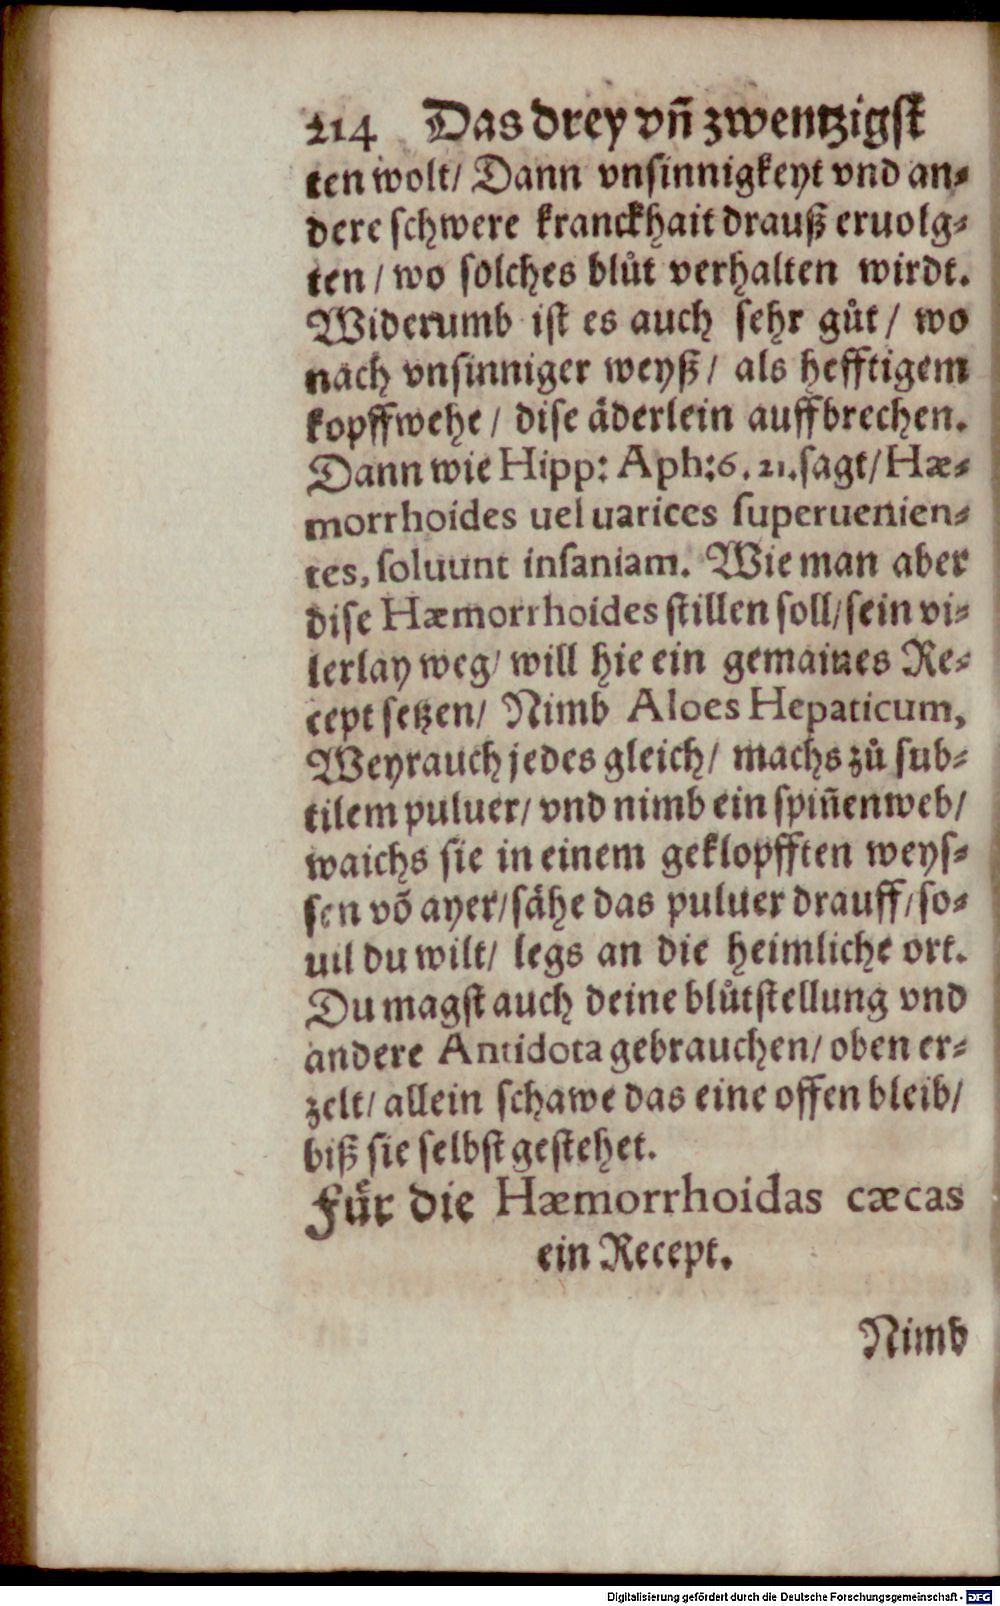 214 Das drey vñ zwentzigst
ten wolt/ Dann vnsinnigkeyt vnd an⸗
dere schwere kranckhait drauß eruolg⸗
ten/ wo solches blůt verhalten wirdt.
Widerumb ist es auch sehr gůt/ wo
nach vnsinniger weyß/ als hefftigem
kopffwehe/ dise äderlein auffbrechen.
Dann wie Hipp: Aph:6. 21. sagt/ Hæ⸗
morrhoides uel uarices superuenien⸗
tes, soluunt insaniam. Wie man aber
dise Hæmorrhoides stillen soll/ sein vi⸗
lerlay weg/ will hie ein gemaines Re⸗
cept setzen/ Nimb Aloes Hepaticum,
Weyrauch jedes gleich/ machs zů sub⸗
tilem puluer/ vnd nimb ein spiñenweb/
waichs sie in einem geklopfften weys⸗
sen võ ayer/ sähe das puluer drauff/ so⸗
uil du wilt/ legs an die heimliche ort.
Du magst auch deine blůtstellung vnd
andere Antidota gebrauchen/ oben er⸗
zelt/ allein schawe das eine offen bleib/
biß sie selbst gestehet.
Für die Hæmorrhoidas cæcas
ein Recept.
Nimb
Digitalisierung gefördert durch die Deutsche Forschungsgemeinschaft - DFG